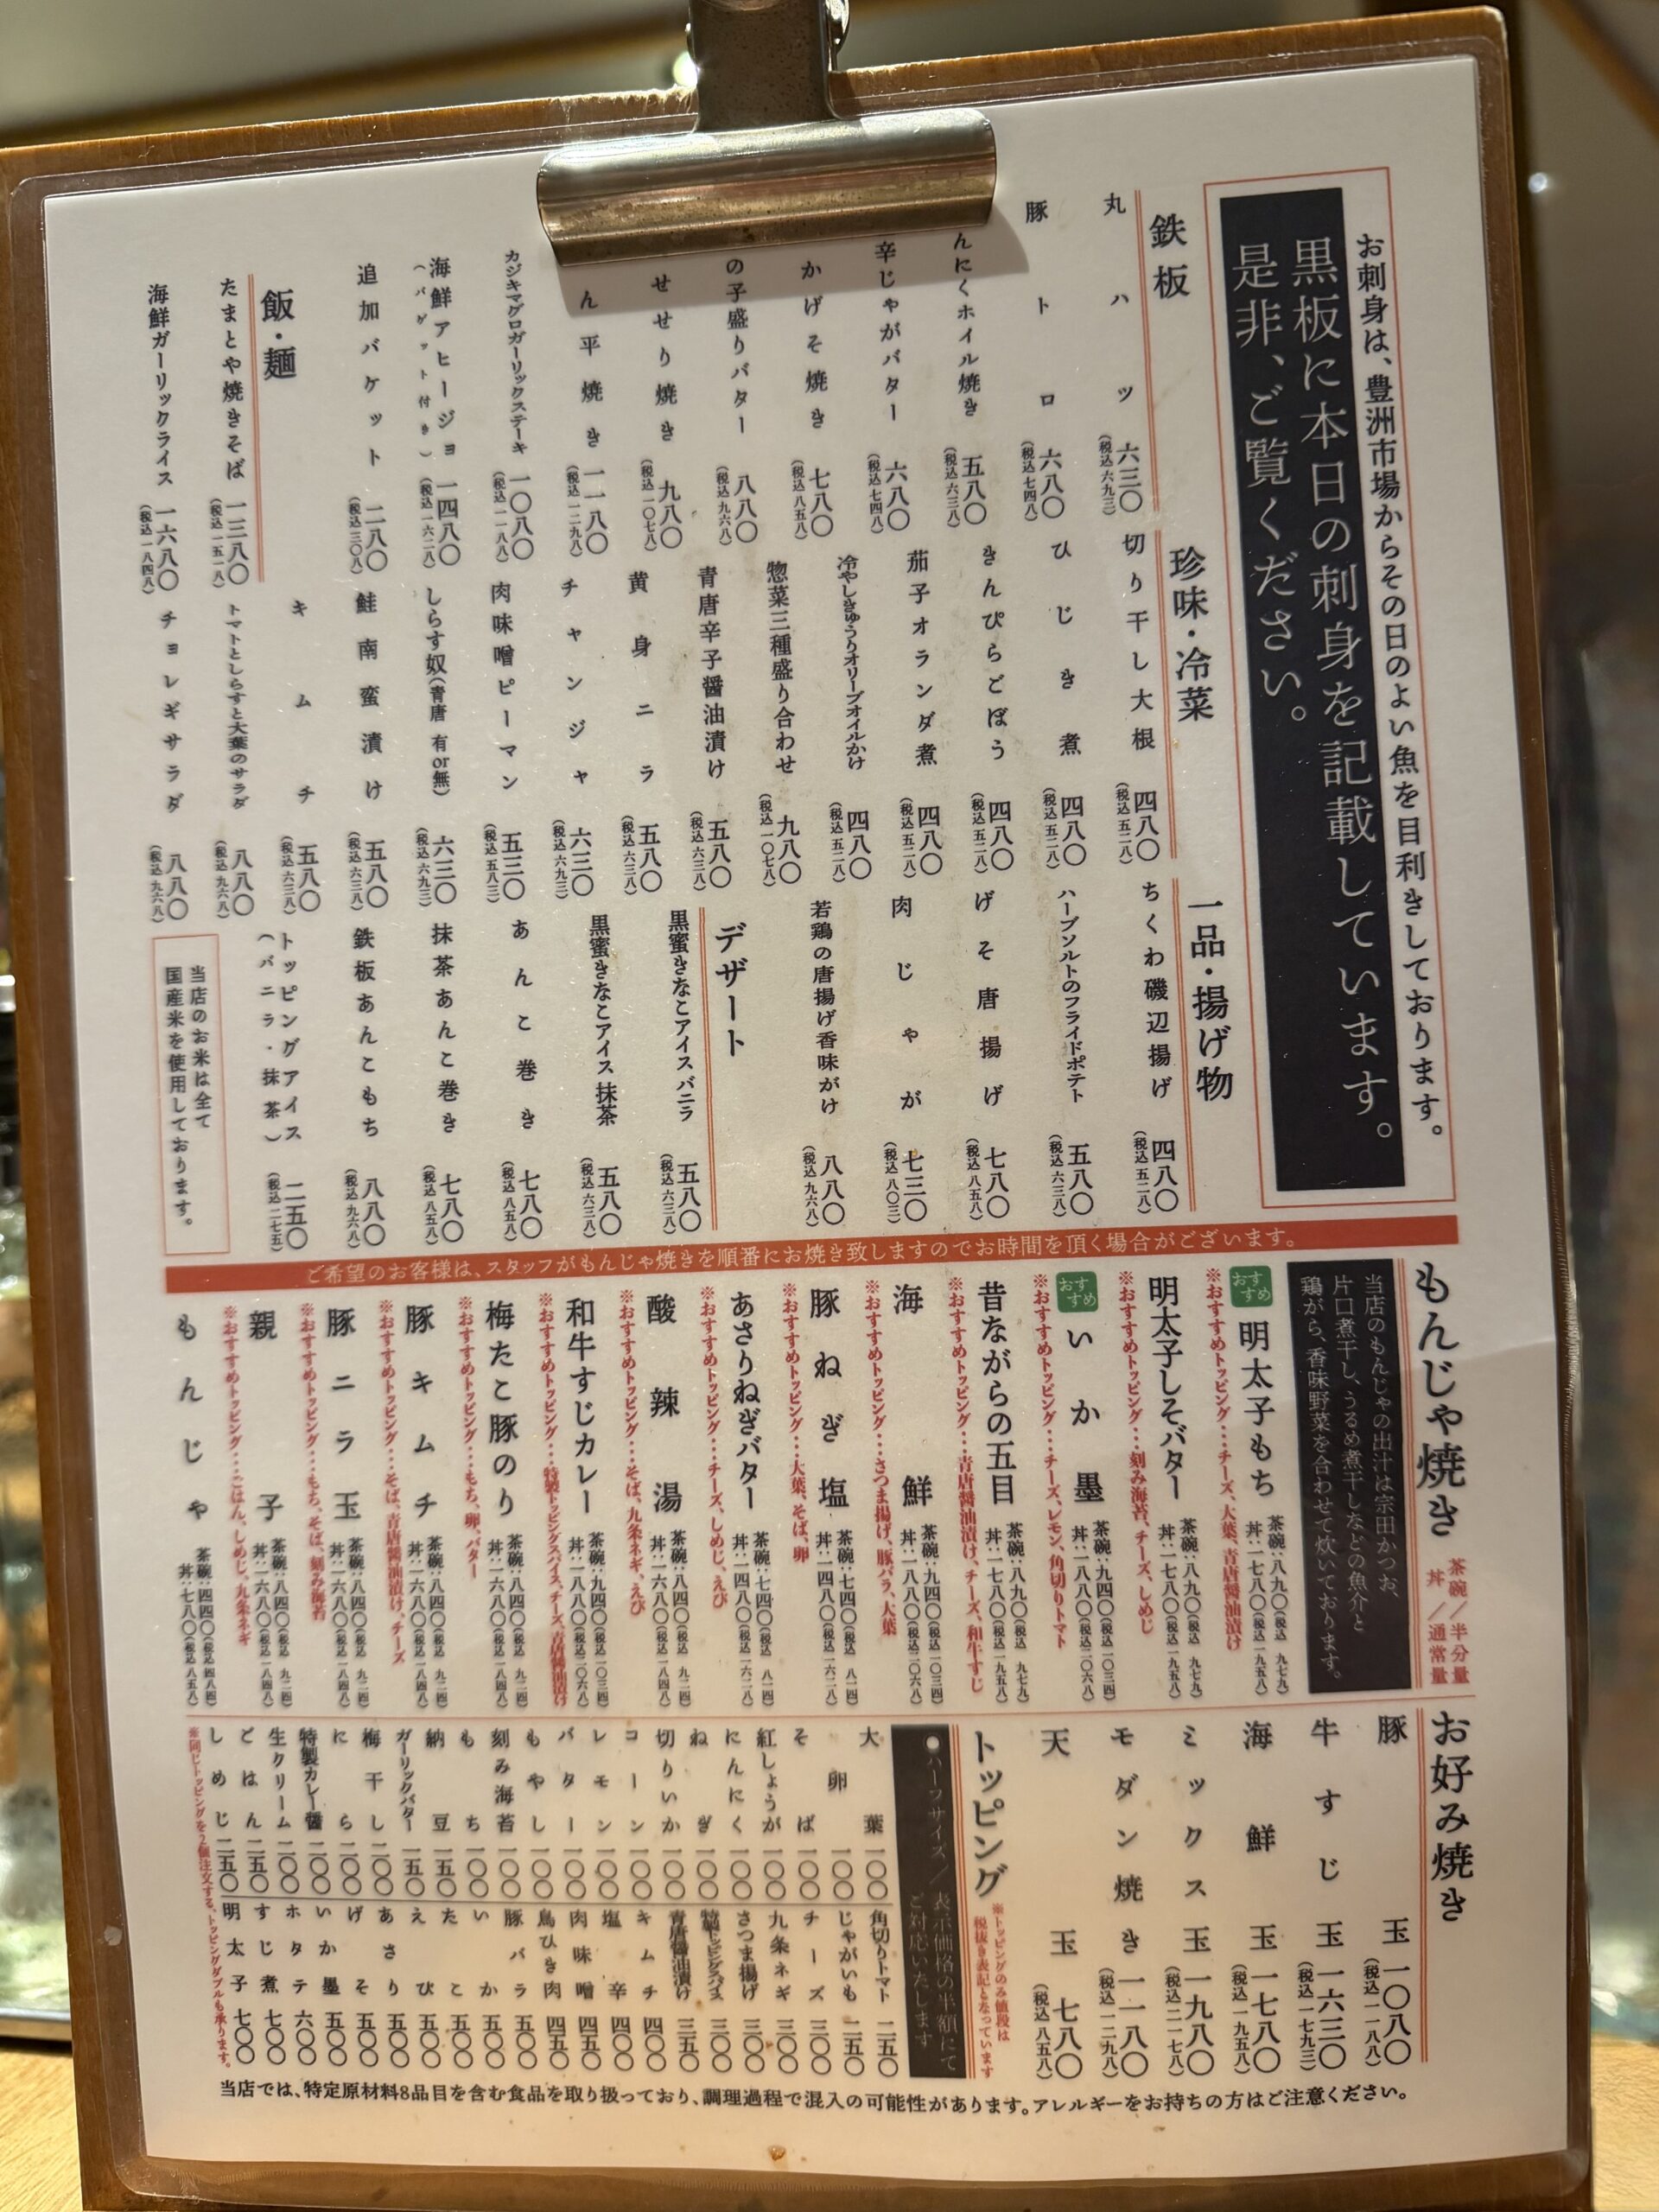 お刺身は、豊洲市場からその日のよい魚を目利きしております。
黒板に本日の刺身を記載しています。
是非、ご覧ください。
鉄板
丸ハツ 六三〇 (税込 六九三)
豚トロ 六八〇 (税込 七四八)
んにくホイル焼き 五八〇 (税込 六三八)
辛じゃがバター 六八〇 (税込 七四八)
かげそ焼き 七八〇 (税込 八五八)
の子盛りバター 八八〇 (税込 九六八)
せせり焼き 九八〇 (税込 一〇七八)
ん平焼き 一一八〇 (税込 一二九八)
カジキマグロガーリックステーキ 一〇八〇 (税込 一一八八)
海鮮アヒージョ 一四八〇 (税込 一六二八)
(バゲット付き)
追加バケット 二八〇 (税込 三〇八)
飯・麺
たまとや焼きそば 一三八〇 (税込 一五一八)
海鮮ガーリックライス 一六八〇 (税込 一八四八)
珍味・冷菜
切り干し大根 四八〇 (税込 五二八)
ひじき煮 四八〇 (税込 五二八)
きんぴらごぼう 四八〇 (税込 五二八)
茄子オランダ煮 四八〇 (税込 五二八)
冷やしきゅうりオリーブオイルかけ 四八〇 (税込 五二八)
惣菜三種盛り合わせ 九八〇 (税込 一〇七八)
青唐辛子醤油漬け 五八〇 (税込 六三八)
黄身ニラ 五八〇 (税込 六三八)
チャンジャ 六三〇 (税込 六九三)
肉味噌ピーマン 五三〇 (税込 五八三)
しらす奴(青唐 有or無) 六三〇 (税込 六九三)
鮭南蛮漬け 五八〇 (税込 六三八)
キムチ 五八〇 (税込 六三八)
トマトとしらすと大葉のサラダ 八八〇 (税込 九六八)
チョレギサラダ 八八〇 (税込 九六八)
一品・揚げ物
ちくわ磯辺揚げ 四八〇 (税込 五二八)
ハーブソルトのフライドポテト 五八〇 (税込 六三八)
げそ唐揚げ 七八〇 (税込 八五八)
肉じゃが 七三〇 (税込 八〇三)
若鶏の唐揚げ香味がけ 八八〇 (税込 九六八)
デザート
黒蜜きなこアイス バニラ 五八〇 (税込 六三八)
黒蜜きなこアイス 抹茶 五八〇 (税込 六三八)
あんこ巻き 七八〇 (税込 八五八)
抹茶あんこ巻き 七八〇 (税込 八五八)
鉄板あんこもち 八八〇 (税込 九六八)
トッピングアイス 二五〇 (税込 二七五)
(バニラ・抹茶)
当店のお米は全て
国産米を使用しております。
ご希望のお客様は、スタッフがもんじゃ焼きを順番にお焼き致しますのでお時間を頂く場合がございます。
もんじゃ焼き
茶碗/半分量
丼/通常量
当店のもんじゃの出汁は宗田かつお、
片口煮干し、うるめ煮干しなどの魚介と
鶏がら、香味野菜を合わせて炊いております。
おすすめ
明太子もち 茶碗:八九〇(税込 九七九) 丼:一七八〇(税込 一九五八)
※おすすめトッピング…チーズ、大葉、青唐醤油漬け
明太子しそバター 茶碗:八九〇(税込 九七九) 丼:一七八〇(税込 一九五八)
※おすすめトッピング…刻み海苔、チーズ、しめじ
おすすめ
いか墨 茶碗:九四〇(税込 一〇三四) 丼:一八八〇(税込 二〇六八)
※おすすめトッピング…チーズ、レモン、角切りトマト
昔ながらの五目 茶碗:八九〇(税込 九七九) 丼:一七八〇(税込 一九五八)
※おすすめトッピング…青唐醤油漬け、チーズ、和牛すじ
海鮮 茶碗:九四〇(税込 一〇三四) 丼:一八八〇(税込 二〇六八)
※おすすめトッピング…さつま揚げ、豚バラ、大葉
豚ねぎ塩 茶碗:七四〇(税込 八一四) 丼:一四八〇(税込 一六二八)
※おすすめトッピング…大葉、そば、卵
あさりねぎバター 茶碗:七四〇(税込 八一四) 丼:一四八〇(税込 一六二八)
※おすすめトッピング…チーズ、しめじ、えび
酸辣湯 茶碗:八四〇(税込 九二四) 丼:一六八〇(税込 一八四八)
※おすすめトッピング…そば、九条ネギ、えび
和牛すじカレー 茶碗:九四〇(税込 一〇三四) 丼:一八八〇(税込 二〇六八)
※おすすめトッピング…特製トッピングスパイス、チーズ、青唐醤油漬け
梅たこ豚のり 茶碗:八四〇(税込 九二四) 丼:一六八〇(税込 一八四八)
※おすすめトッピング…もち、卵、バター
豚キムチ 茶碗:八四〇(税込 九二四) 丼:一六八〇(税込 一八四八)
※おすすめトッピング…そば、青唐醤油漬け、チーズ
豚ニラ玉 茶碗:八四〇(税込 九二四) 丼:一六八〇(税込 一八四八)
※おすすめトッピング…もち、そば、刻み海苔
親子 茶碗:八四〇(税込 九二四) 丼:一六八〇(税込 一八四八)
※おすすめトッピング…ごはん、しめじ、九条ネギ
もんじゃ 茶碗:四四〇(税込 四八四) 丼:七八〇(税込 八五八)
お好み焼き
豚玉 一〇八〇 (税込 一一八八)
牛すじ玉 一六三〇 (税込 一七九三)
海鮮玉 一七八〇 (税込 一九五八)
ミックス玉 一九八〇 (税込 二一七八)
モダン焼き 一一八〇 (税込 一二九八)
天玉 七八〇 (税込 八五八)
トッピング
※トッピングのみ値段は
税抜き表記となっています
●ハーフサイズ/表示価格の半額にて
ご対応いたします
大葉 一〇〇
卵 一〇〇
そば 一〇〇
紅しょうが 一〇〇
にんにく 一〇〇
ねぎ 一〇〇
切りいか 一〇〇
コーン 一〇〇
レモン 一〇〇
バター 一〇〇
もやし 一〇〇
刻み海苔 一〇〇
もち 一〇〇
納豆 一五〇
ガーリックバター 一五〇
梅干し 二〇〇
にら 二〇〇
特製カレー醤 二〇〇
生クリーム 二〇〇
ごはん 二五〇
しめじ 二五〇
角切りトマト 二五〇
じゃがいも 二五〇
チーズ 三〇〇
九条ネギ 三〇〇
さつま揚げ 三〇〇
特製トッピングスパイス 三〇〇
青唐醤油漬け 三五〇
キムチ 四〇〇
塩辛 四〇〇
肉味噌 四五〇
鳥ひき肉 四五〇
豚バラ 五〇〇
いか 五〇〇
たこ 五〇〇
えび 五〇〇
あさり 五〇〇
げそ 五〇〇
いか墨 五〇〇
ホタテ 六〇〇
すじ煮 七〇〇
明太子 七〇〇
※同じトッピングを2個注文する、トッピングダブルも承ります。
当店では、特定原材料8品目を含む食品を取り扱っており、調理過程で混入の可能性があります。アレルギーをお持ちの方はご注意ください。